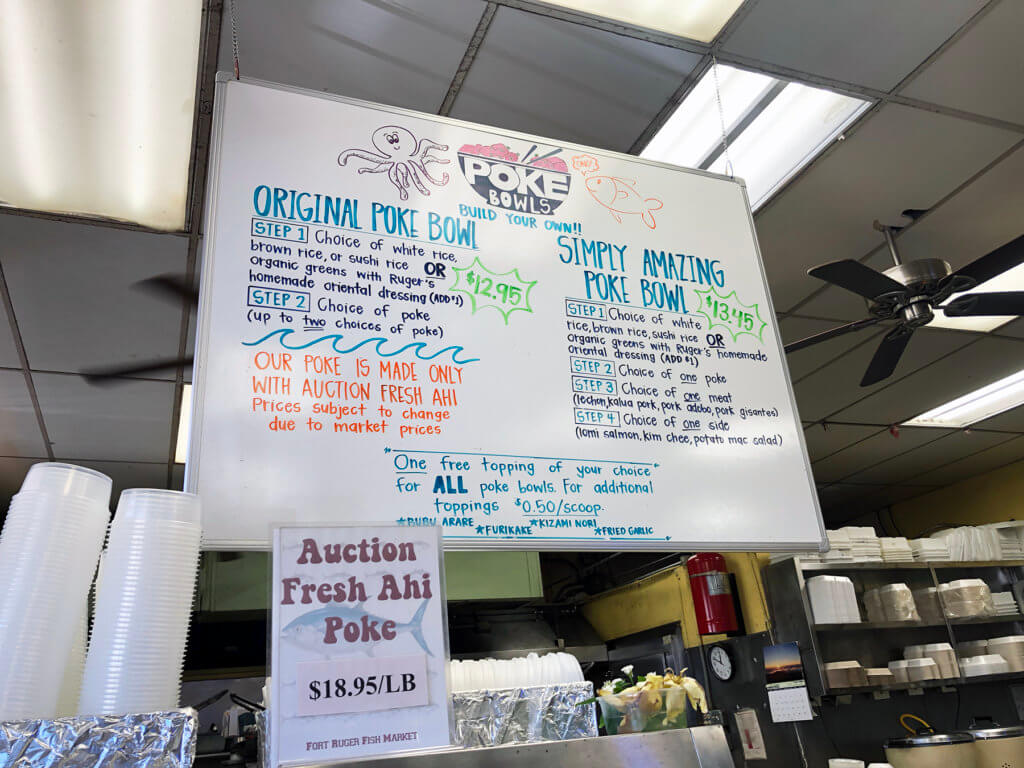 POKE
BOWLS
ONO!
BUILD YOUR OWN!!
ORIGINAL POKE BOWL
STEP 1 Choice of white rice,
brown rice, or sushi rice OR
organic greens with Ruger's
homemade oriental dressing (ADD $1)
$12.95
STEP 2 Choice of poke
(up to two choices of poke)
OUR POKE IS MADE ONLY
WITH AUCTION FRESH AHI
Prices subject to change
due to market prices
SIMPLY AMAZING
POKE BOWL
$13.45
STEP 1 Choice of white
rice, brown rice, sushi rice OR
organic greens with Ruger's homemade
oriental dressing (ADD $1)
STEP 2 Choice of one poke
STEP 3 Choice of one meat
(lechon, kalua pork, pork adobo, pork gisantes)
STEP 4 Choice of one side
(lomi salmon, kim chee, potato mac salad)
One free topping of your choice
for ALL poke bowls. For additional
toppings $0.50/scoop.
*BUBU ARARE *FURIKAKE *KIZAMI NORI *FRIED GARLIC
Auction
Fresh Ahi
Poke
$18.95/LB
FORT RUGER FISH MARKET